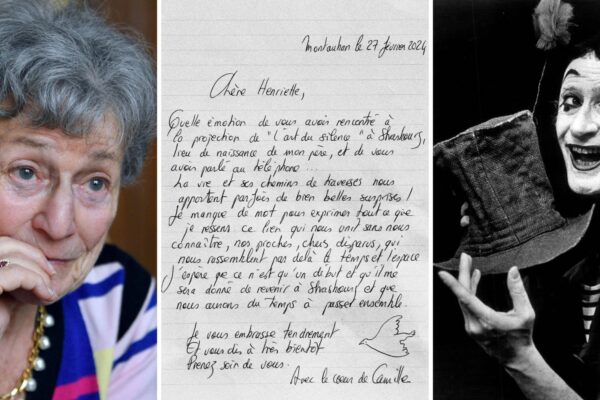 Montauban le 27 février 2024
Chère Henriette,
Quelle émotion de vous avoir rencontré à
la projection de "L'art du silence" à Strasbourg,
lieu de naissance de mon père, et de vous
avoir parlé au téléphone...
La vie et ses chemins de traverses nous
apportent parfois de bien belles surprises !
Je manque de mot pour exprimer tout ce que
je ressens ce lien qui nous unit sans nous
connaître, nos proches, chers disparus, qui
nous rassemblent par delà le temps et l'espace
J'espère que ce n'est qu'un début et qu'il me
sera donné de revenir à Strasbourg et que
nous aurons du temps à passer ensemble.
Je vous embrasse tendrement
Et vous dis à très bientôt
Prenez soin de vous.
Avec le coeur de Camille